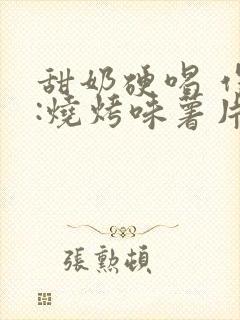 甜奶硬唱
:燒烤味薯片
張勲頓